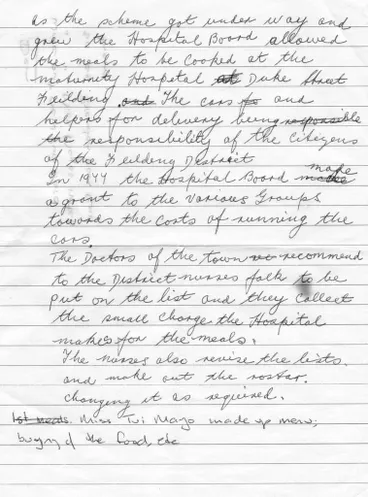 as the scheme got under way and
grew the Hospital Board allowed
the meals to be cooked at the
maternity Hospital at Duke Street
Feilding. and The cars to and
helpers for delivery being responsible
the responsibility of the Citizens
of the Feilding District
In 1944 the Hospital Board make
a grant to the various Groups
towards the costs of running the
cars.
The Doctors of the town recommend
to the District nurses folk to be
put on the list and they collect
the small charge the Hospital
makes for the meals.
The nurses also revise the lists.
and make out the rostar.
changing it as required.
Miss Tui Mayo made up menu,
buying of the food, etc